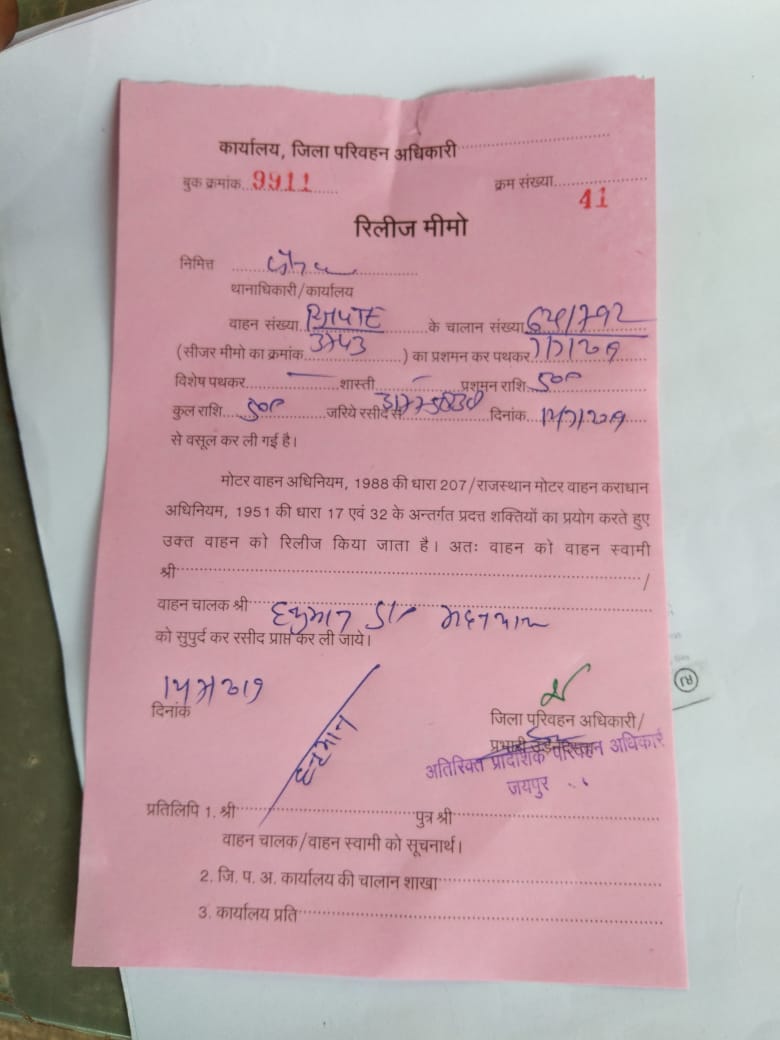 कार्यालय, जिला परिवहन अधिकारी
बुक क्रमांक 9911 क्रम संख्या 41
रिलीज मीमो
निमित्त
थानाधिकारी/कार्यालय
वाहन संख्या के चालान संख्या
(सीजर मीमो का क्रमांक 3743 ) का प्रशमन कर पथकर
विशेष पथकर शास्ती प्रशमन राशि 500
कुल राशि 500 जरिये रसीद सं दिनांक
से वसूल कर ली गई है।
मोटर वाहन अधिनियम, 1988 की धारा 207/राजस्थान मोटर वाहन कराधान
अधिनियम, 1951 की धारा 17 एवं 32 के अन्तर्गत प्रदत्त शक्तियों का प्रयोग करते हुए
उक्त वाहन को रिलीज किया जाता है। अतः वाहन को वाहन स्वामी
श्री /
वाहन चालक श्री हनुमान S/o
को सुपुर्द कर रसीद प्राप्त कर ली जाये।
दिनांक
हनुमान
जिला परिवहन अधिकारी/
अतिरिक्त प्रादेशिक परिवहन अधिकारी
जयपुर
प्रतिलिपि 1. श्री पुत्र श्री
वाहन चालक/वाहन स्वामी को सूचनार्थ।
2. जि. प. अ. कार्यालय की चालान शाखा
3. कार्यालय प्रति